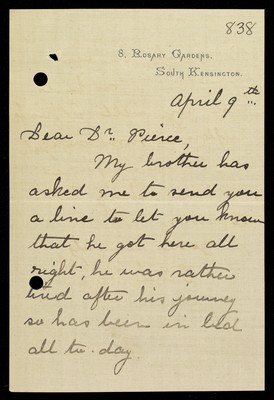 838
8, Rosary Gardens,
South Kensington.
April 9th
Dear Dr. Pierce,
My brother has
asked me to send you
a line to let you know
that he got here all
right, he was rather
tired after his journey
so has been in bed
all to-day.